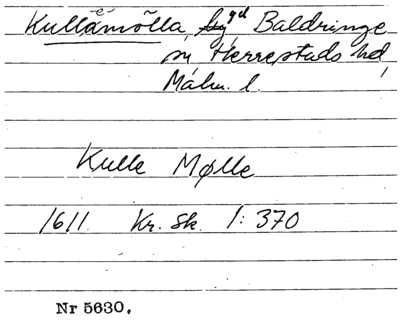 Kullamölla, gd Baldringe
sn, Herrestads hd,
Malm. l.
Kulle Mølle
1611. Kr. Sk. 1: 370
Nr 5630.